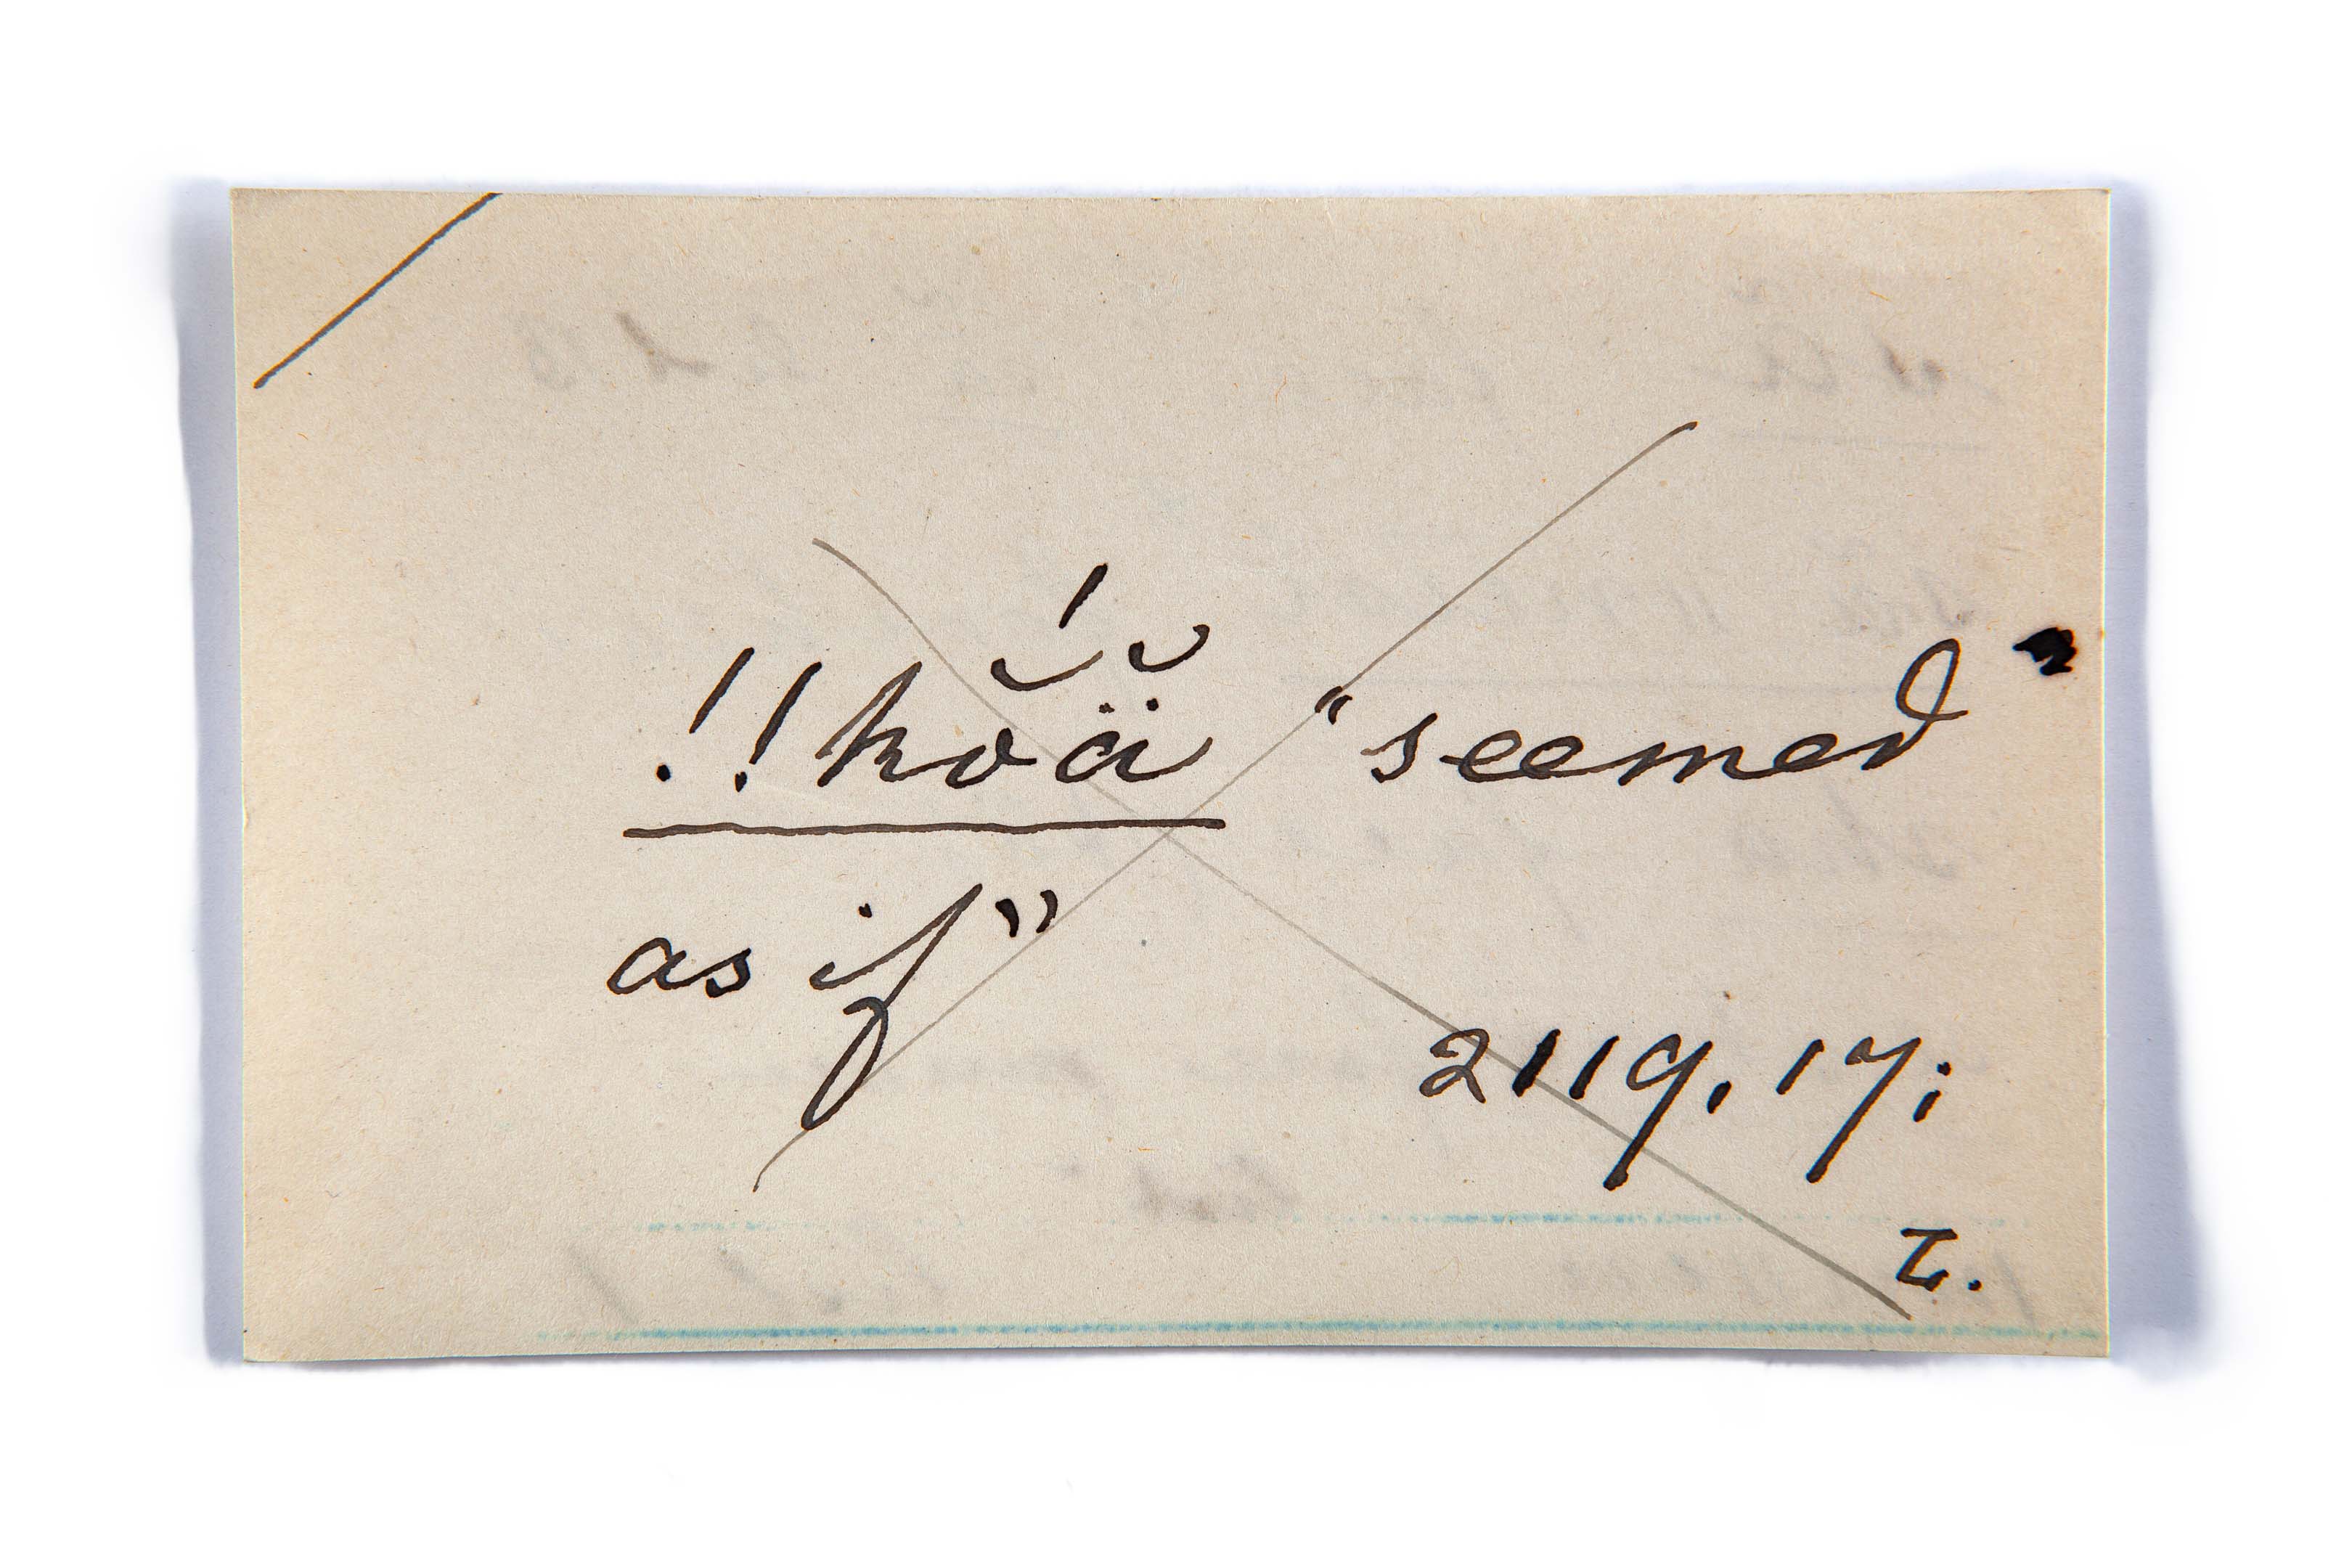 !!kŏ́ä̆ "seemed
as if"
2119, 17;
L.